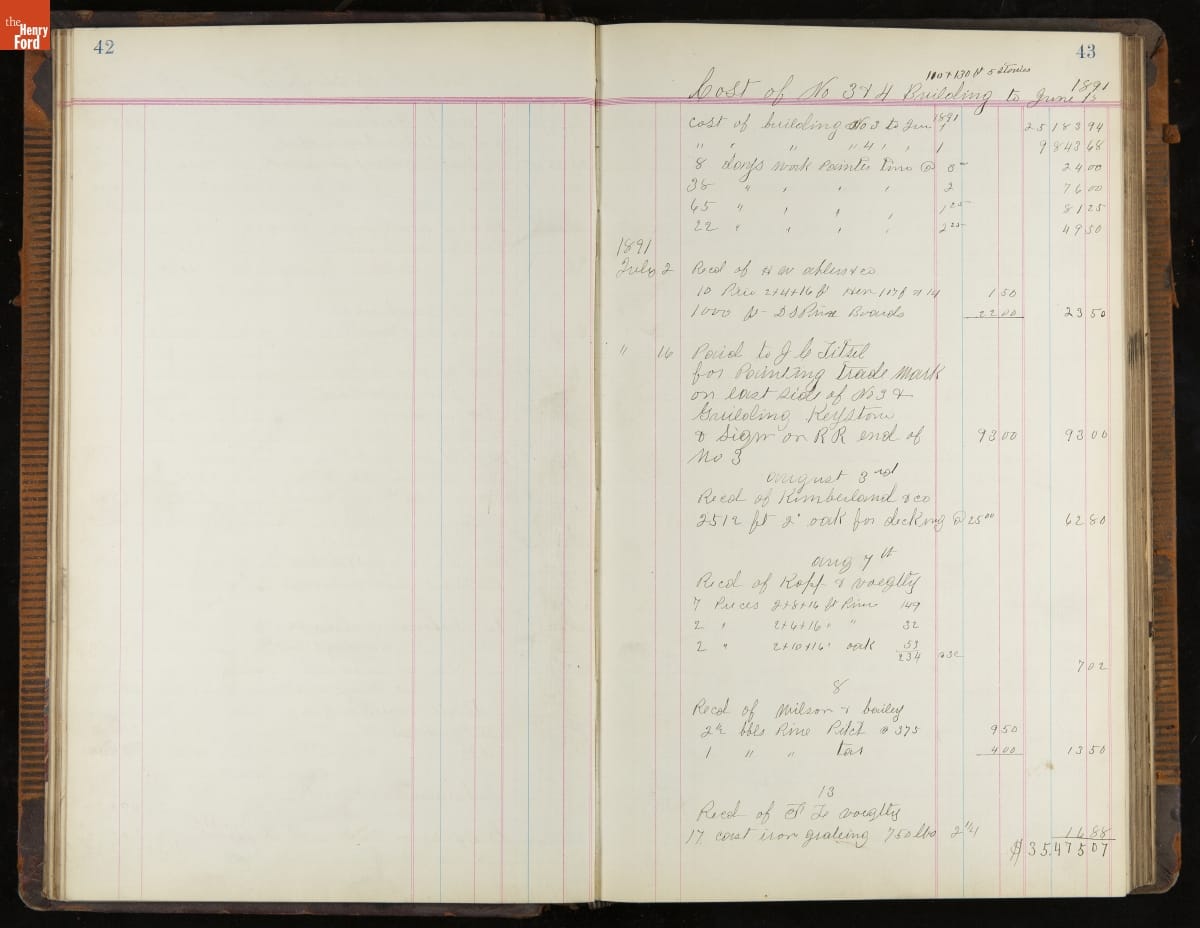 the
Henry
Ford
42
43
110 + 130 ft 5 Stories
Cost of No 3 & 4 Building to June 15 1891
Cost of building No 3 to Jun 1 1891 25183 94
" " " " 4 " " 1 9843 68
8 days work Painter time @ 3 00 24 00
38 " " " " 2 76 00
65 " " " " 1 25 81 25
22 " " " " 2 25 49 50
1891
July 2 Recd of & co
10 2+4+16 ft 14 1 50
1000 ft D S Pine Boards 22 00 23 50
" 16 Paid to J C Titzel
for Painting trade mark
on east side of No 3 &
Guilding Keystone
& Sign on R R end of 93 00 93 00
No 3
august 3rd
Recd of Kimberland & co
2512 ft 2" oak for decking @ 25 00 62 80
aug 7th
Recd of Kopp & voegtly
7 Pieces 2+8+16 ft Pine 149
2 " 2+6+16 " " 32
2 " 2+10+16 " oak 53
234 @ 32
7 02
8
Recd of Wilson & bailey
2½ bbls Pine Pitch @ 375 9 50
1 " " tar 4 00 13 50
13
Recd of voegtly
17 cast iron grateing 750 lbs 2 1/4 16 88
$ 35475 07